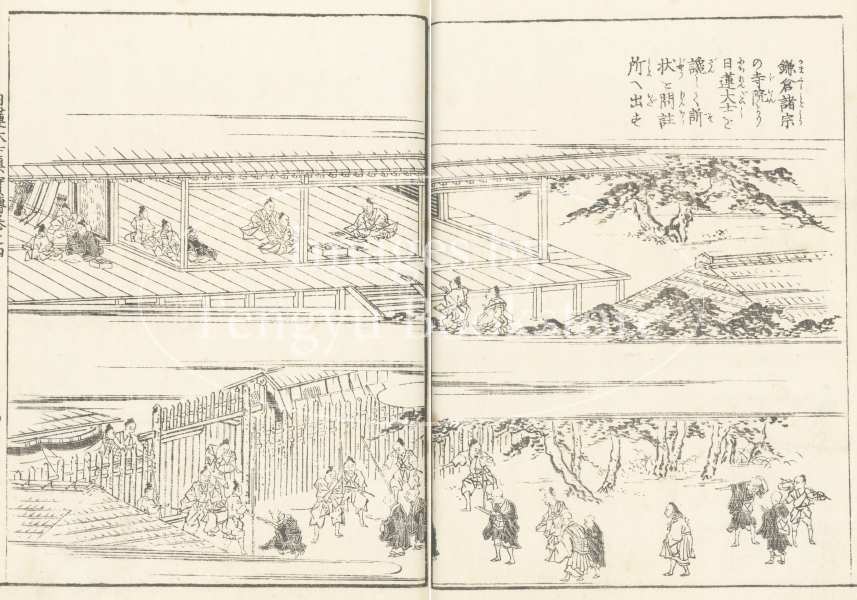 鎌倉諸宗
の寺院より
日蓮大士を
讒して訴
状を問註
所へ出す
Images by
Tengyu Bookstore